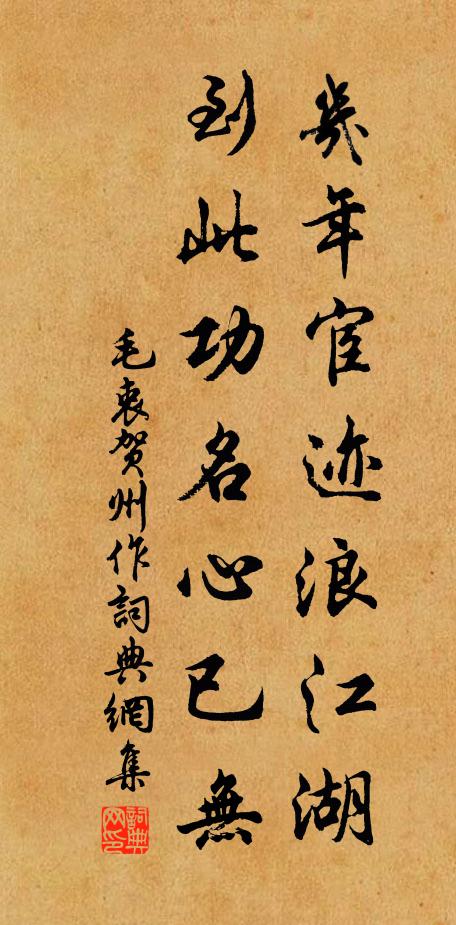 幾年宦迹浪江湖
到此功名心已無
毛衷賀州作詞典網集
詞典網印